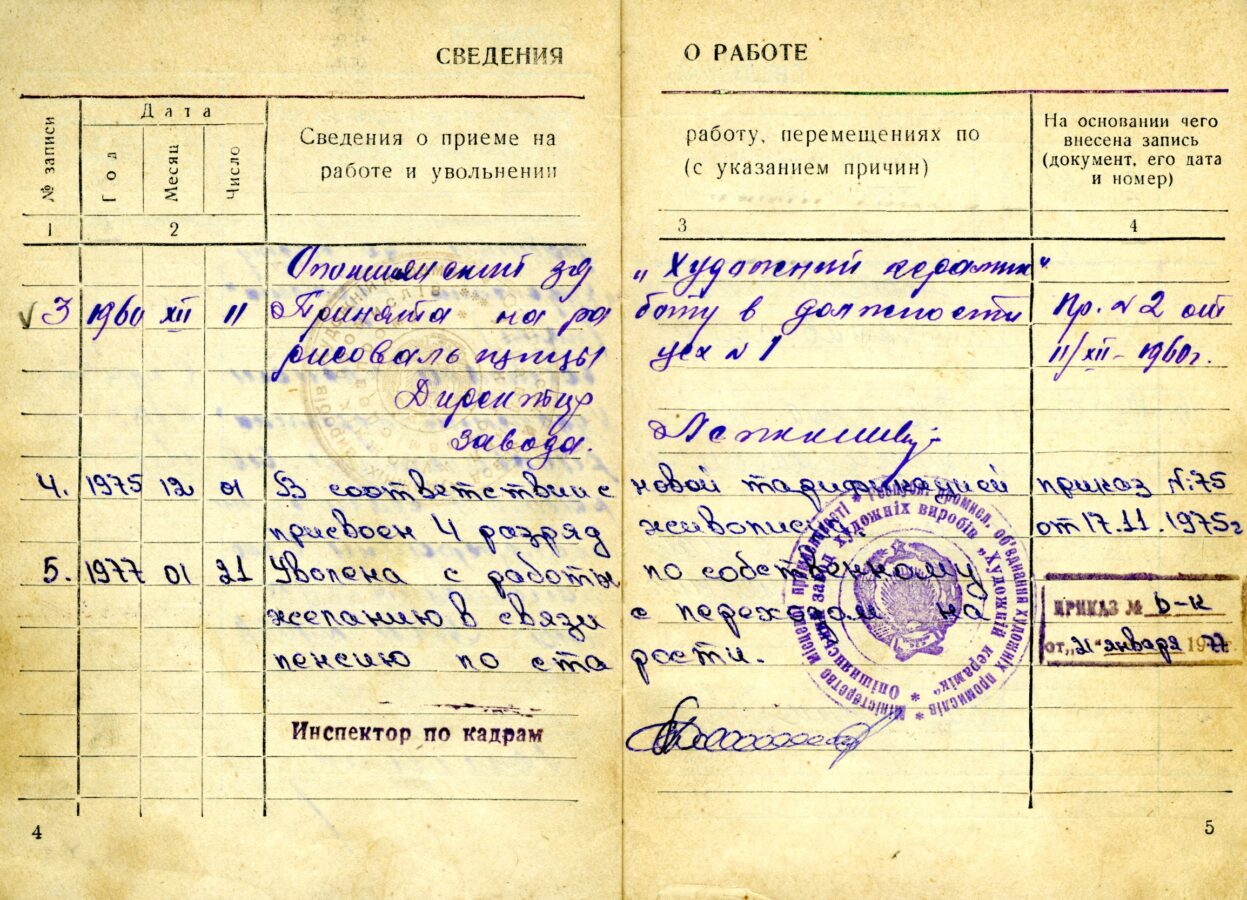 СВЕДЕНИЯ О РАБОТЕ
№ записи
Дата
Год
Месяц
Число
Сведения о приеме на работу, перемещениях по
работе и увольнении (с указанием причин)
На основании чего
внесена запись
(документ, его дата
и номер)
1 2 3 4
Опошнянский з-д „Художний керамик"
3 1960 XII 11 Принята на работу в должности Пр. № 2 от
рисовальщицы цех № 1 11/XII-1960г.
Директор
завода.
4. 1975 12 01 В соответствии с новой тарификацией приказ №75
присвоен 4 разряд живописца от 17.11.1975г
5. 1977 01 21 Уволена с работы по собственному
желанию в связи с переходом на
пенсию по старости.
ПРИКАЗ № 6-к
от „21" января 1977г.
Міністерство місцевої промисловості * Республ. промисл. об'єднання художніх промислів *
Опішнянський завод художніх виробів „Художній керамік" *
Инспектор по кадрам
4
5